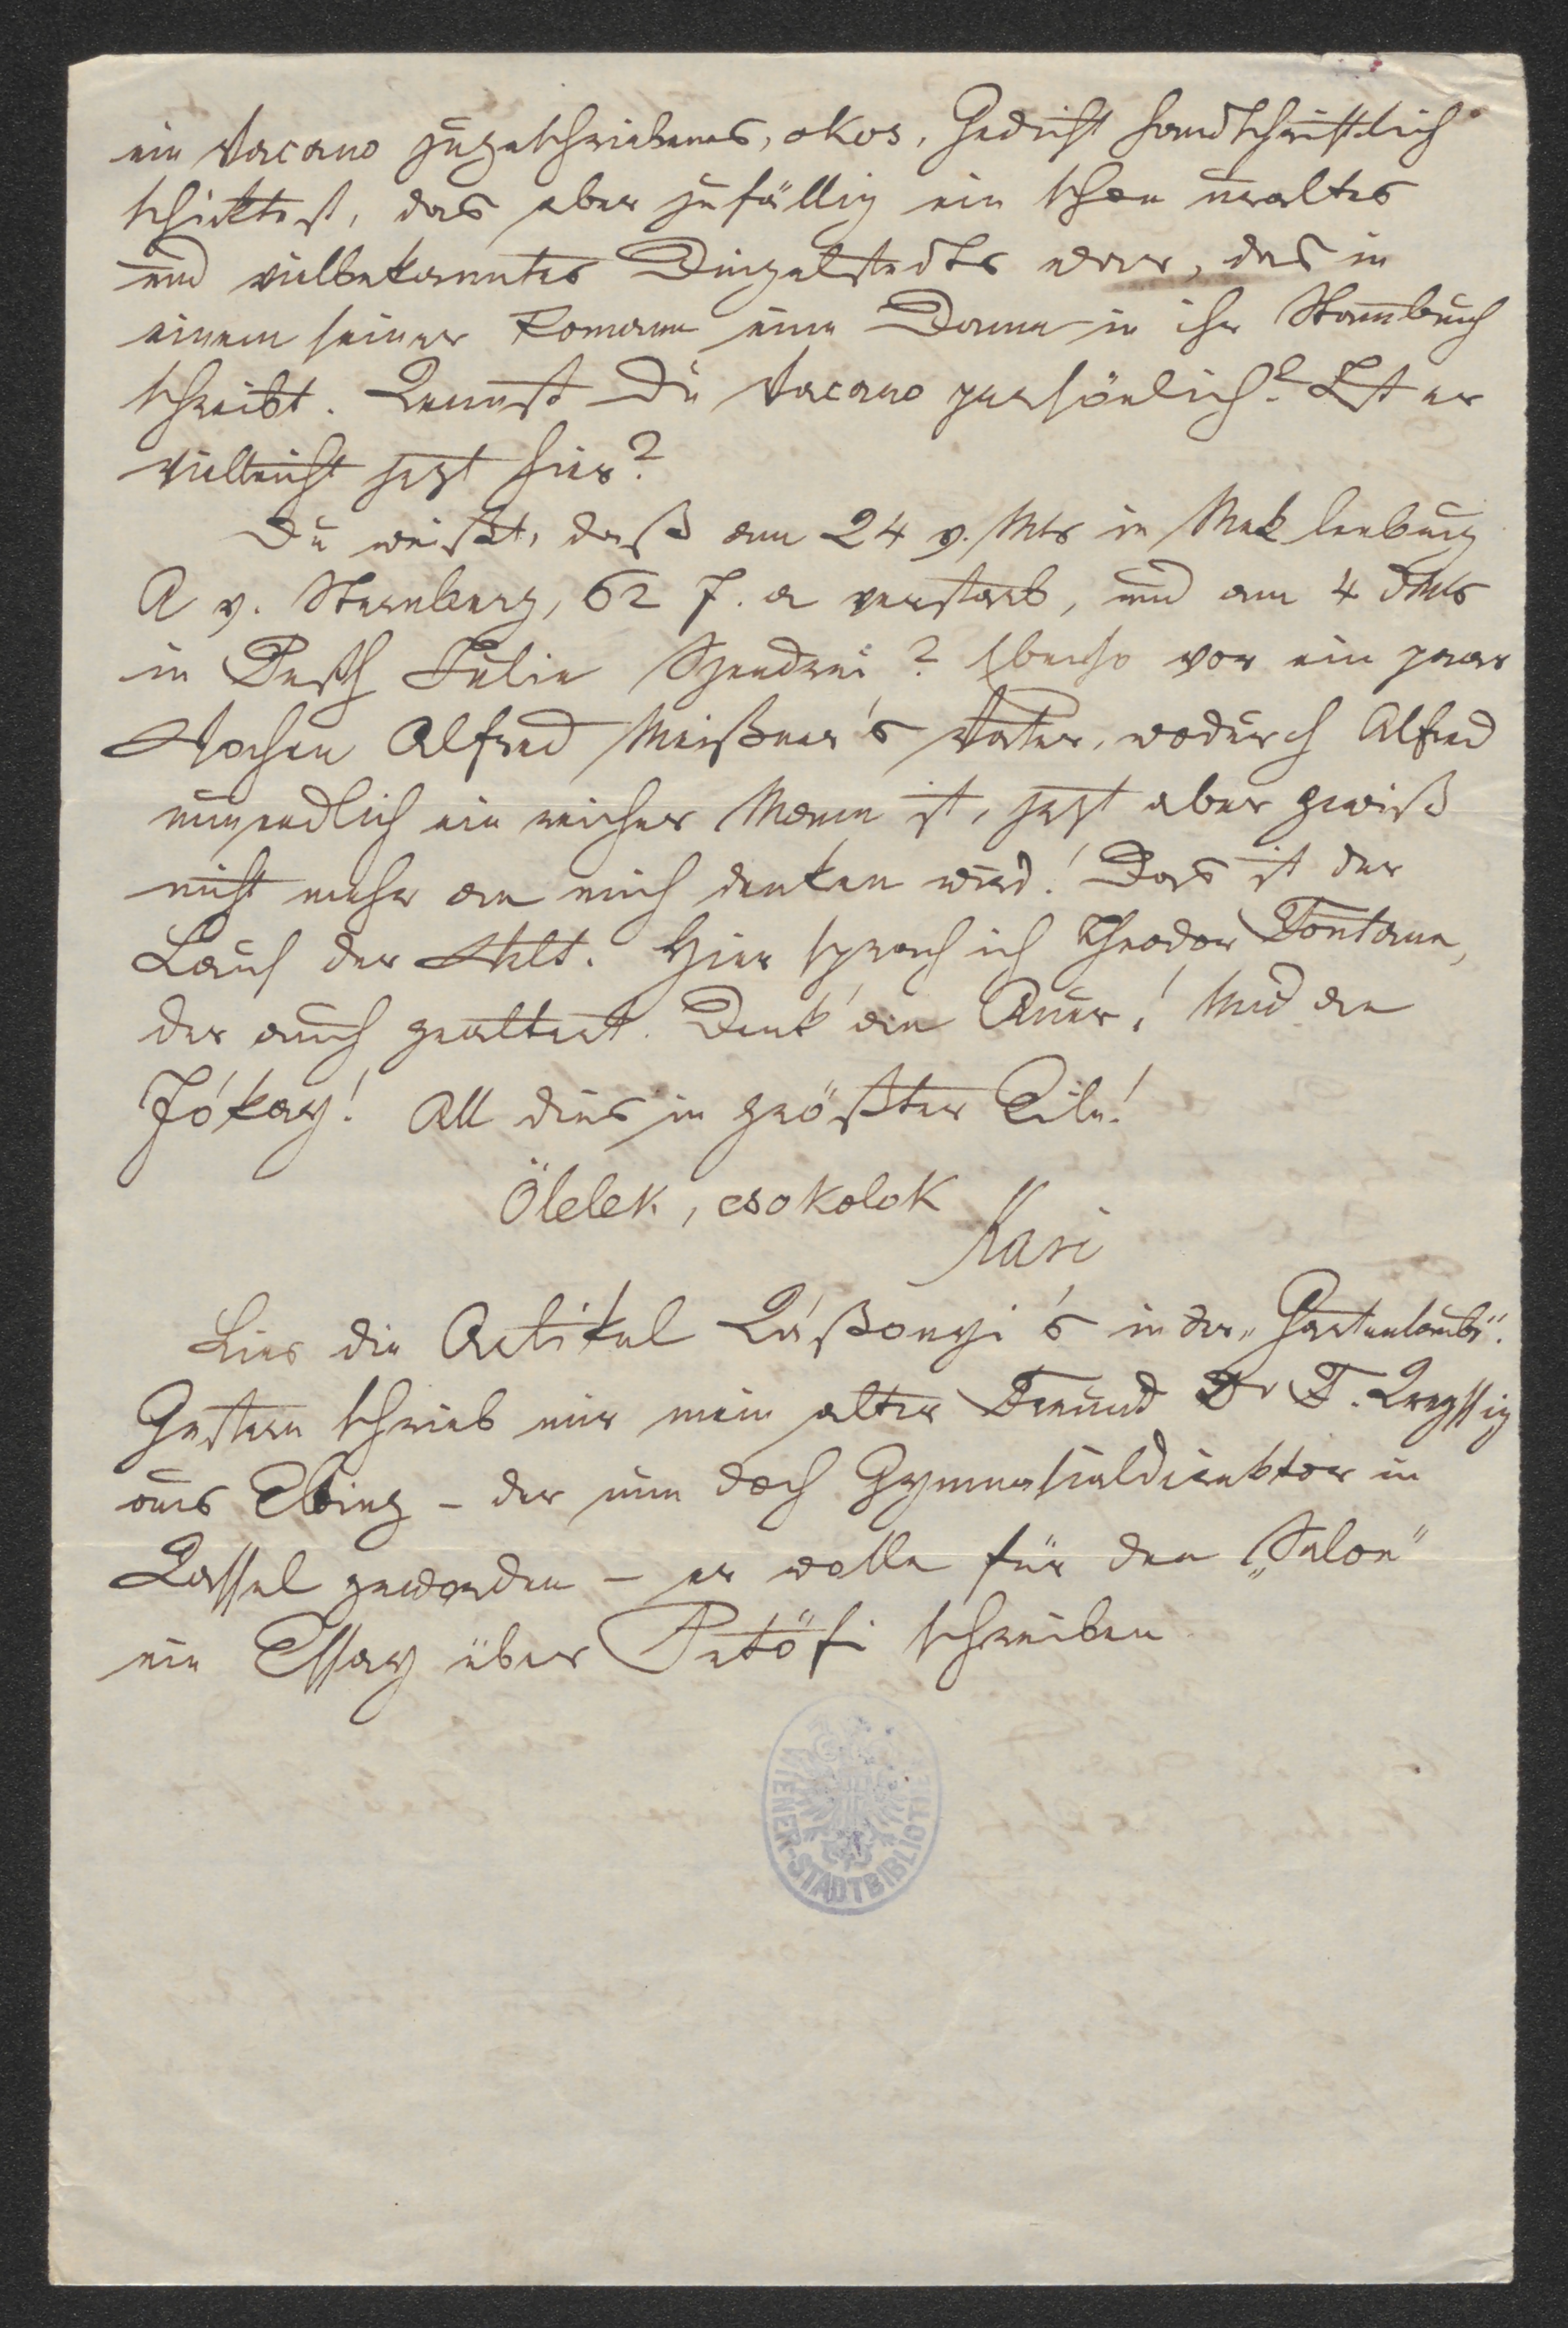 ein Vacano zugeschriebenes, okos, Gedicht handschriftlich
schicktest, das aber zufällig ein schon uraltes
und vielbekanntes Dingelstedts war, das in
einem seiner Romane eine Dame in ihr Stammbuch
schreibt. Kennst Du Vacano persönlich? Ist er
vielleicht jezt hier?
Du weißt, daß am 24 v. Mts in Meklenburg
A v. Sternberg, 62 J. a verstarb, und am 4 d Mts
in Pesth Julie Szendrei? Ebenso vor ein paar
Wochen Alfred Meißner's Vater, wodurch Alfred
nun endlich ein reicher Mann ist, jezt aber gewiß
nicht mehr an mich denken wird! Das ist der
Lauf der Welt. Hier sprach ich Theodor Fontane,
der auch gealtert. Denk' an Auer! Und an
Jókay! All dies in größter Eile!
Ölelek, csokolok
Kari
Lies die Artikel Káßonyi's in der „Gartenlaube".
Gestern schrieb mir mein alter Freund Dr F. Kreyssig
aus Elbing – der nun doch Gymnasialdirektor in
Kassel geworden – er wolle für den „Salon"
ein Essay über Petöfi schreiben
WIENER-STADTBIBLIOTHEK